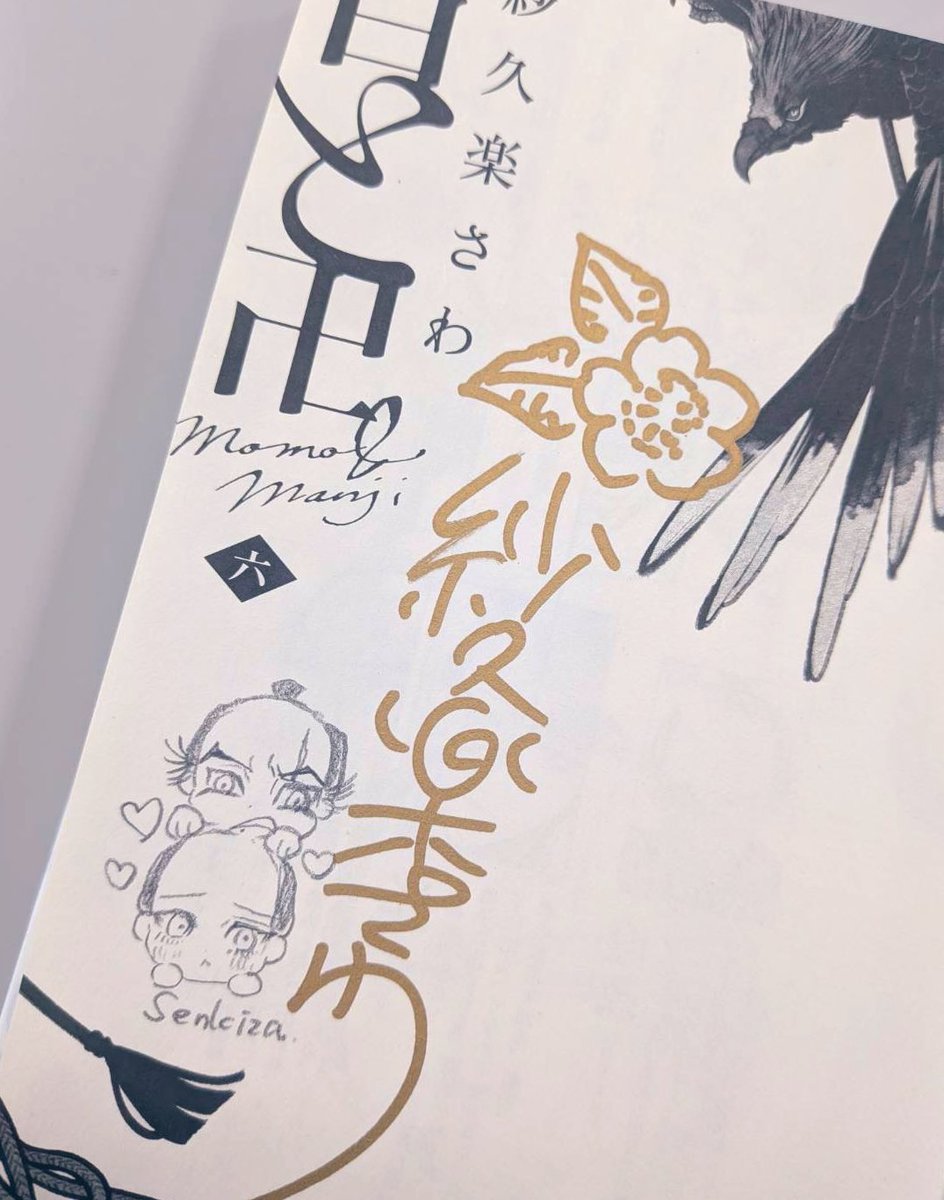 紗久楽さわ
百と卍
Momo &
Manji
六
紗久楽さわ
Senkiza.